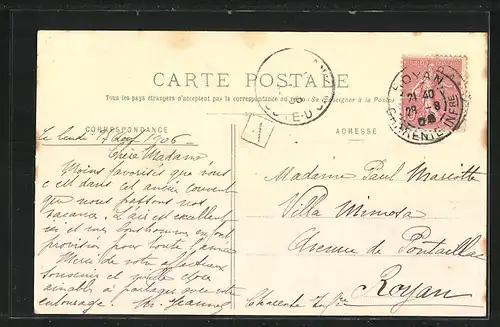 CARTE POSTALE
Tous les pays étrangers n'acceptent pas la correspondance au (Se renseigner à la Poste)
CORRESPONDANCE
ADRESSE
ROYAN
21 40
28 - 8
06
CHARENTE INFRE
Le lundi 1906
Chère Madame
Moins favorisés que vous
c'est dans cet couvent
que nous passons nos
vacances. L'air est excellent
ici et mes font
provision pour toute l'année
Merci de votre affectueux
souvenir et mille choses
aimables à partager avec votre
entourage. Jeanne
Madame Paul Mariotte
Villa Mimosa
Avenue de Pontaillac
Royan
Charente Infre